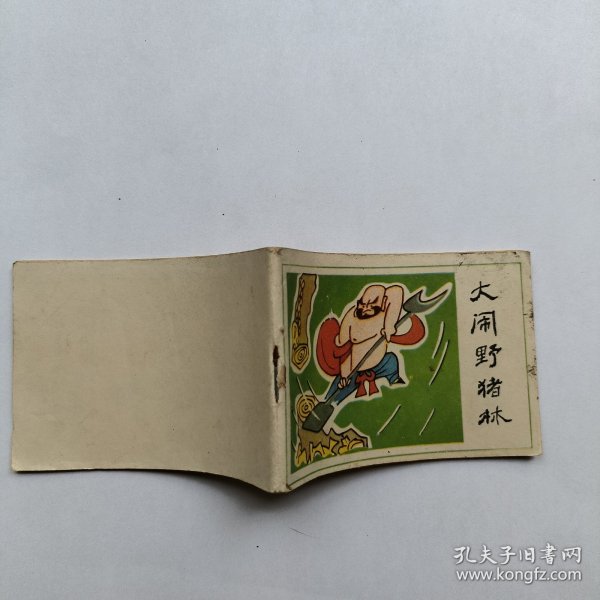 大闹野猪林
孔夫子旧书网
www.kongfz.com